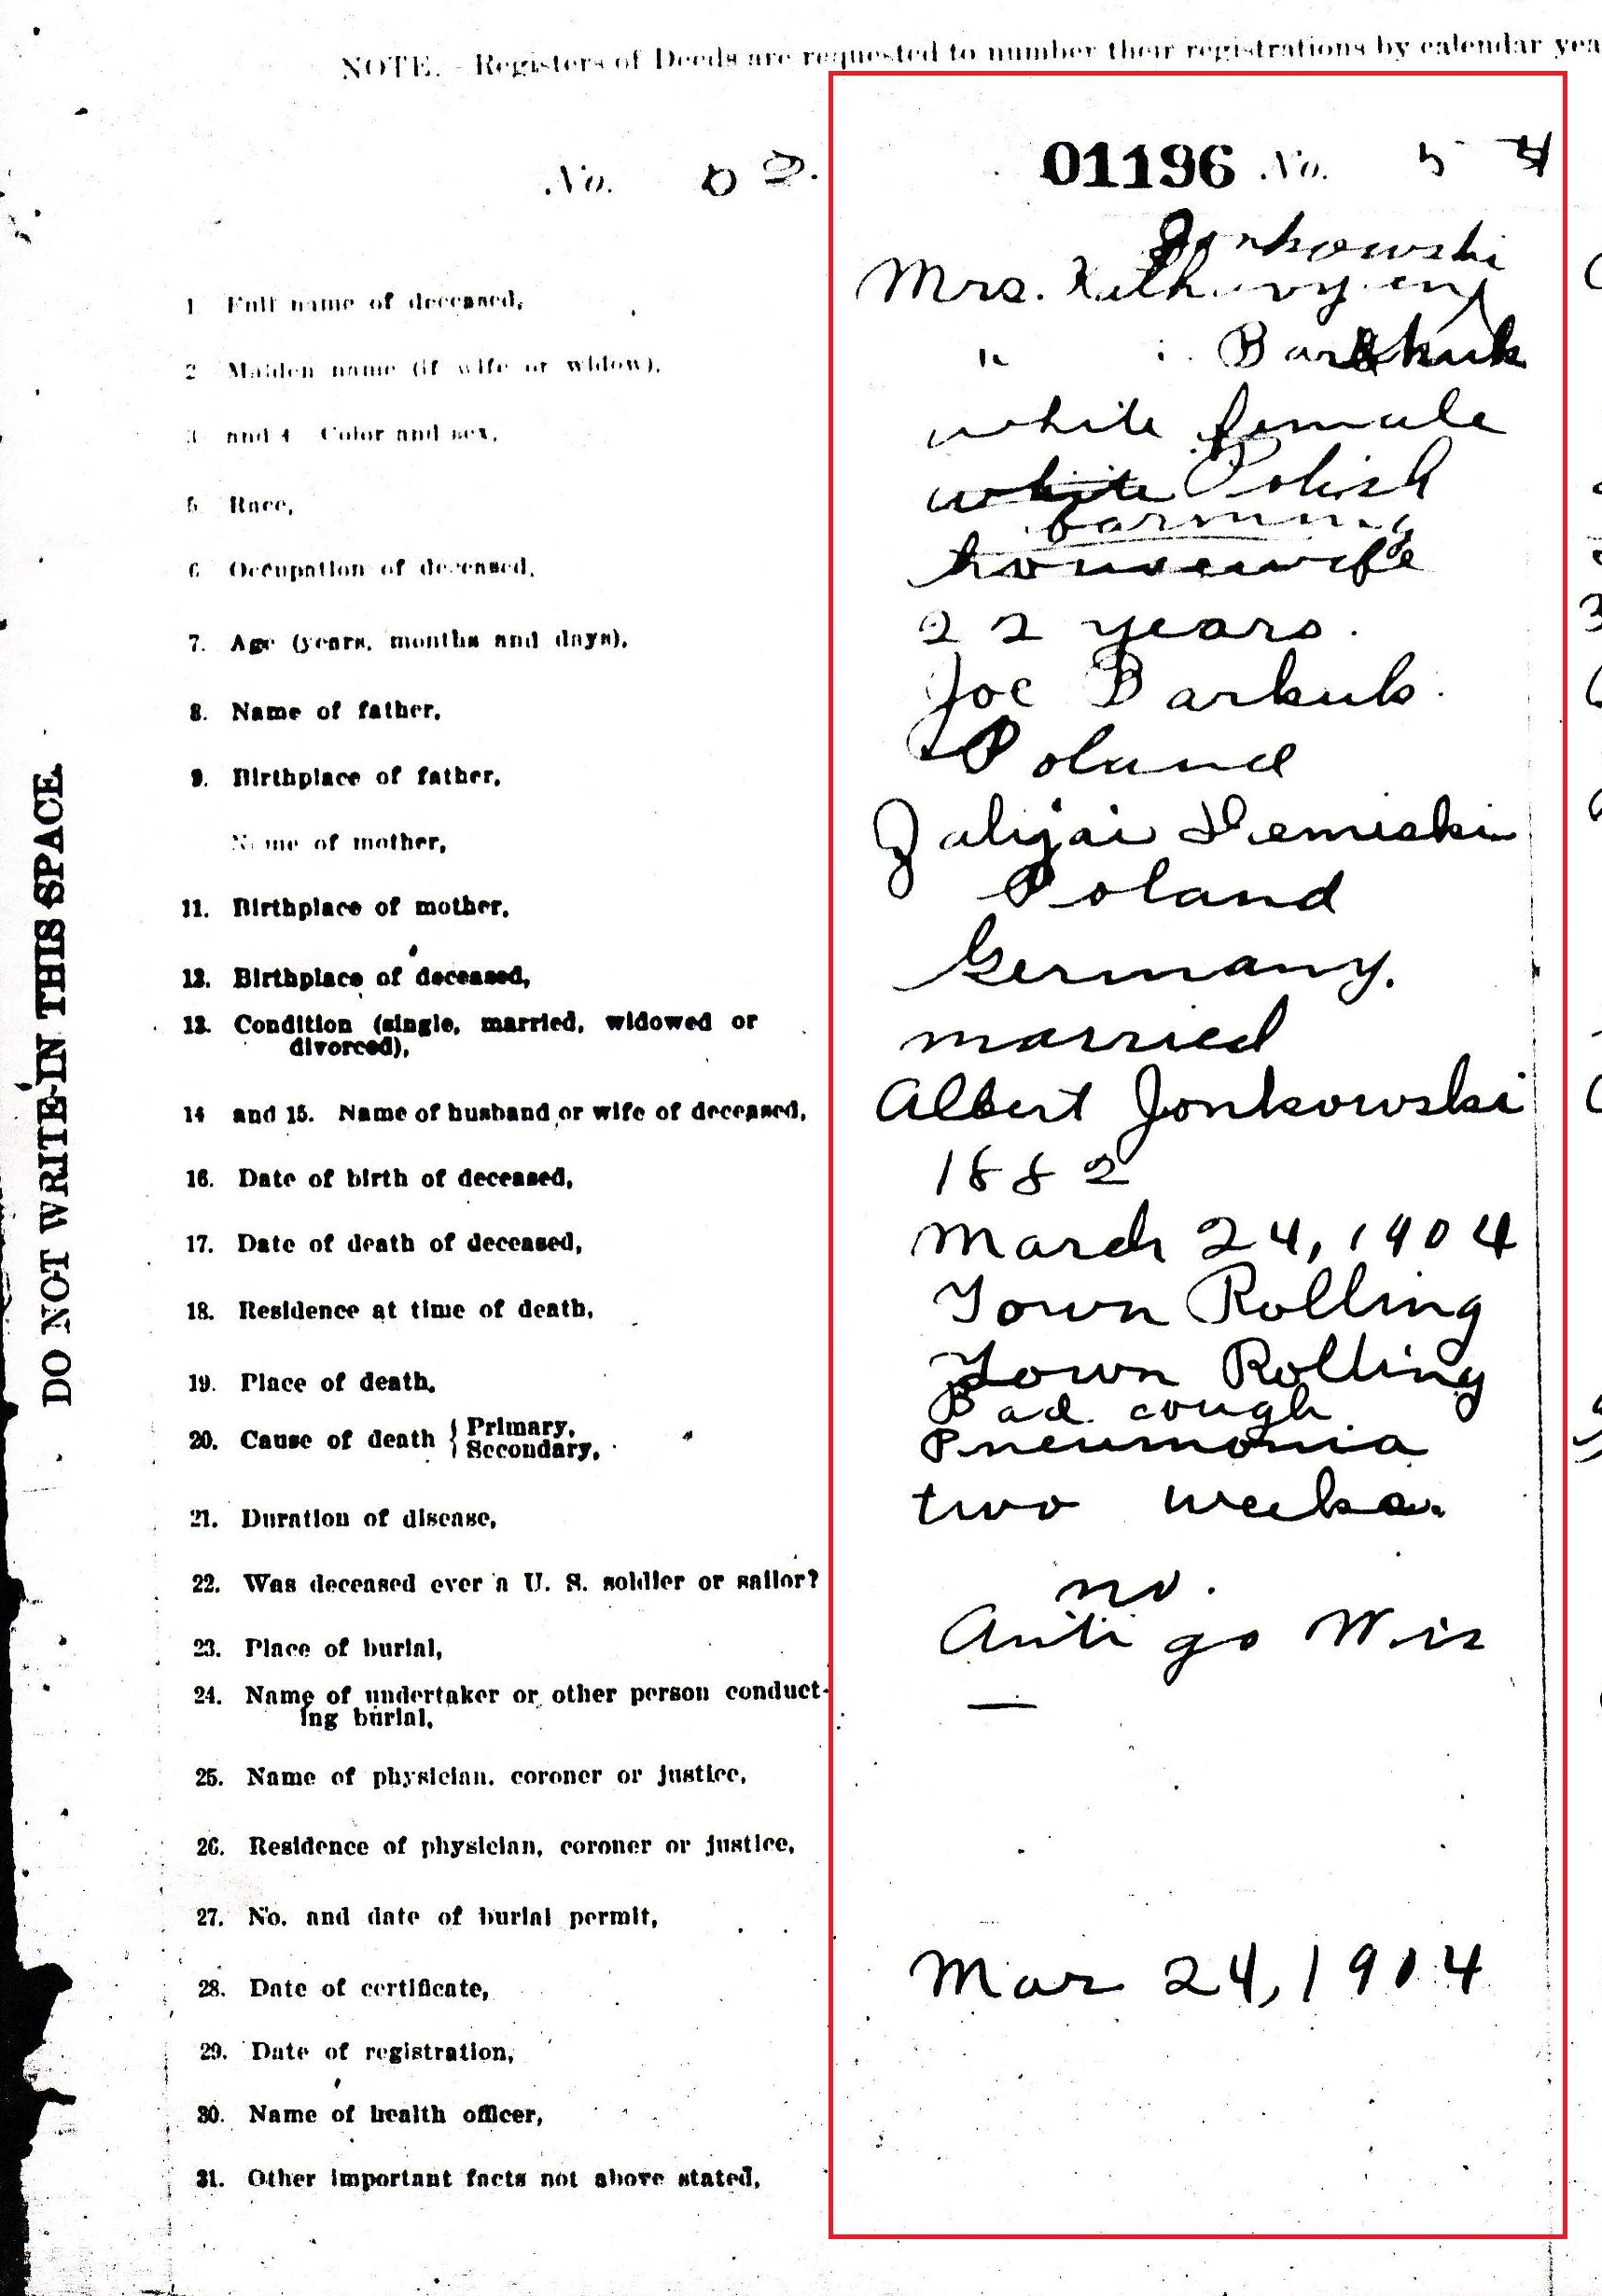 NOTE. - Registers of Deeds are requested to number their registrations by calendar yea
No.
01196 No. 5
DO NOT WRITE IN THIS SPACE
1 Full name of deceased, Mrs.
2 Maiden name (if wife or widow), "
3 and 4 Color and sex, white female
5 Race, white Polish
farming
6 Occupation of deceased, housewife
7. Age (years, months and days), 22 years.
8. Name of father, Joe Barkuk.
9. Birthplace of father, Poland
Name of mother,
11. Birthplace of mother, Poland
12. Birthplace of deceased, Germany.
13. Condition (single, married, widowed or
divorced), married
14 and 15. Name of husband or wife of deceased, Albert Jonkowski
16. Date of birth of deceased, 1882
17. Date of death of deceased, March 24, 1904
18. Residence at time of death, Town Rolling
19. Place of death, Town Rolling
20. Cause of death { Primary, Bad cough
Secondary, Pneumonia
21. Duration of disease, two weeks.
22. Was deceased ever a U. S. soldier or sailor? no.
23. Place of burial, Antigo Wis
24. Name of undertaker or other person conduct-
ing burial, —
25. Name of physician, coroner or justice,
26. Residence of physician, coroner or justice,
27. No. and date of burial permit,
28. Date of certificate, Mar 24, 1904
29. Date of registration,
30. Name of health officer,
31. Other important facts not above stated,